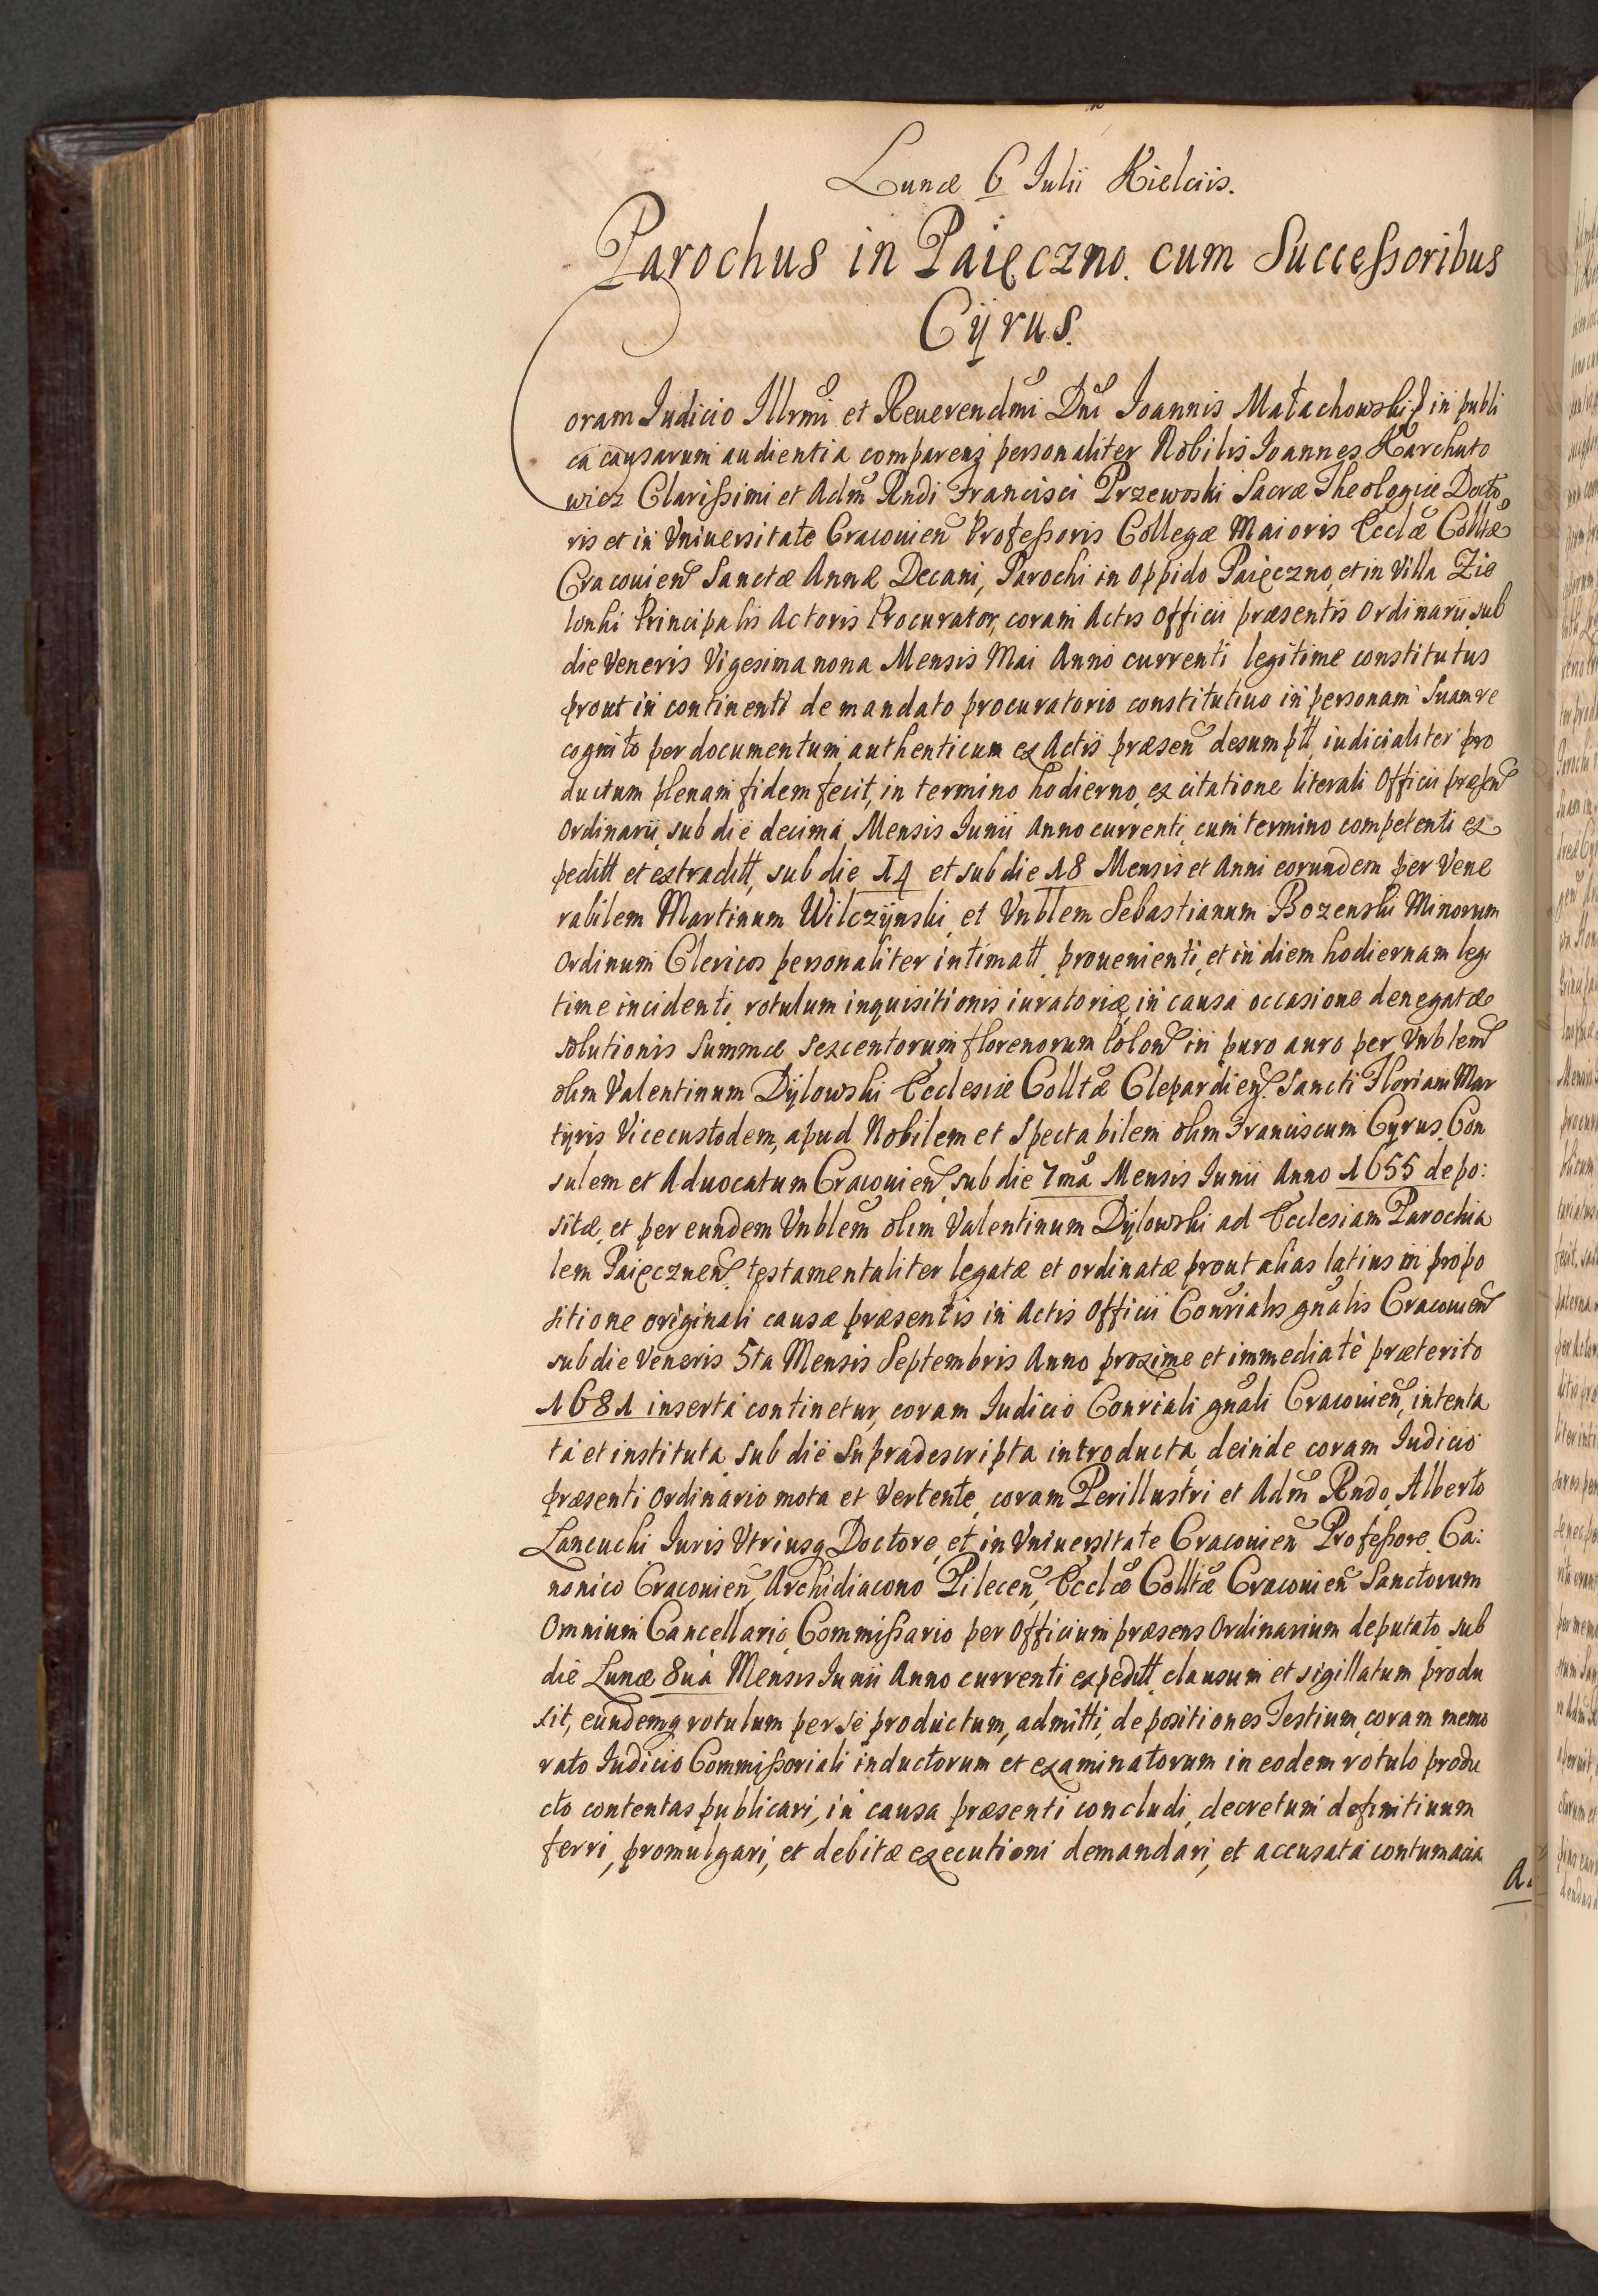 Lunæ 6 Julii Kielciis.
Parochus in Paięczno. cum Succeſsoribus
Cÿrus.
Coram Iudicio Illrmi et Reuerendmi Dni Ioannis Małachowski in publi
ca causarum audientia comparens personaliter Nobilis Ioannes Karchuto
wicz Clariſsimi et Adm Rndi Francisci Przewoski Sacræ Theologiæ Docto
ris et in Vniuersitate Cracouien Profeſsoris Collegæ Maioris Ecclæ Colltæ
Cracouien Sanctæ Annæ Decani, Parochi in Oppido Paięczno, et in Villa Zie
lonki Principalis Actoris Procurator, coram Actis Officii præsentis Ordinarii sub
die Veneris Vigesima nona Mensis Mai Anno currenti legitime constitutus
prout in continenti de mandato procuratorio constitutiuo in personam Suam re
cognito per documentum authenticum ex Actis præsen desumptt iudicialiter pro
ductum plenam fidem fecit, in termino hodierno, ex citatione literali Officii præsen
Ordinarii sub die decima Mensis Iunii Anno currenti cum termino competenti ex
peditt et extraditt, sub die 14 et sub die 18 Mensis et Anni eorundem per Vene
rabilem Martinum Wilczÿnski et Vnblem Sebastianum Bozenski Minorum
Ordinum Clericos personaliter intimatt prouenienti, et in diem hodiernam legi
time incidenti rotulum inquisitionis iuratoriæ, in causa occasione denegatæ
solutionis Summæ Sexcentorum florenorum Polon in puro auro per Vnblem
olim Valentinum Dÿlowski Ecclesiæ Colltæ Clepardien. Sancti Floriani Mar
tyris Vicecustodem, apud Nobilem et Spectabilem olim Franciscum Cyrus Con
sulem et Aduocatum Cracouien sub die 7ma Mensis Iunii Anno 1655 depo:
sitæ, et per eundem Vnblem olim Valentinum Dÿlowski ad Ecclesiam Parochia
lem Paięcznen testamentaliter legatæ et ordinatæ prout alias latius in propo
sitione originali causæ præsentis in Actis Officii Consrialis gnalis Cracouien
sub die Veneris 5ta Mensis Septembris Anno proxime et immediatè præterito
1681 inserta continetur, coram Iudicio Consriali gnali Cracouien, intenta
ta et instituta sub die Supradescripta introducta, deinde coram Iudicio
præsenti Ordinario mota et Vertente, coram Perillustri et Adm Rndo Alberto
Lancucki Iuris Vtriusq Doctore, et in Vniuersitate Cracouien Profeſsore. Ca:
nonico Cracouien, Archidiacono Pilecen, Ecclæ Colltæ Cracouien Sanctorum
Omnium Cancellario, Commiſsario per Officium præsens Ordinarium deputato sub
die Lunæ 8ua Mensis Iunii Anno currenti expeditt clausum et sigillatum produ
xit, eundemq rotulum per se productum, admitti, depositiones Testium coram memo
rato Iudicio Commiſsoriali inductorum et examinatorum in eodem rotulo produ
cto contentas publicari, in causa præsenti concludi, decretum definitiuum
ferri, promulgari, et debitæ executioni demandari, et accusata contumacia